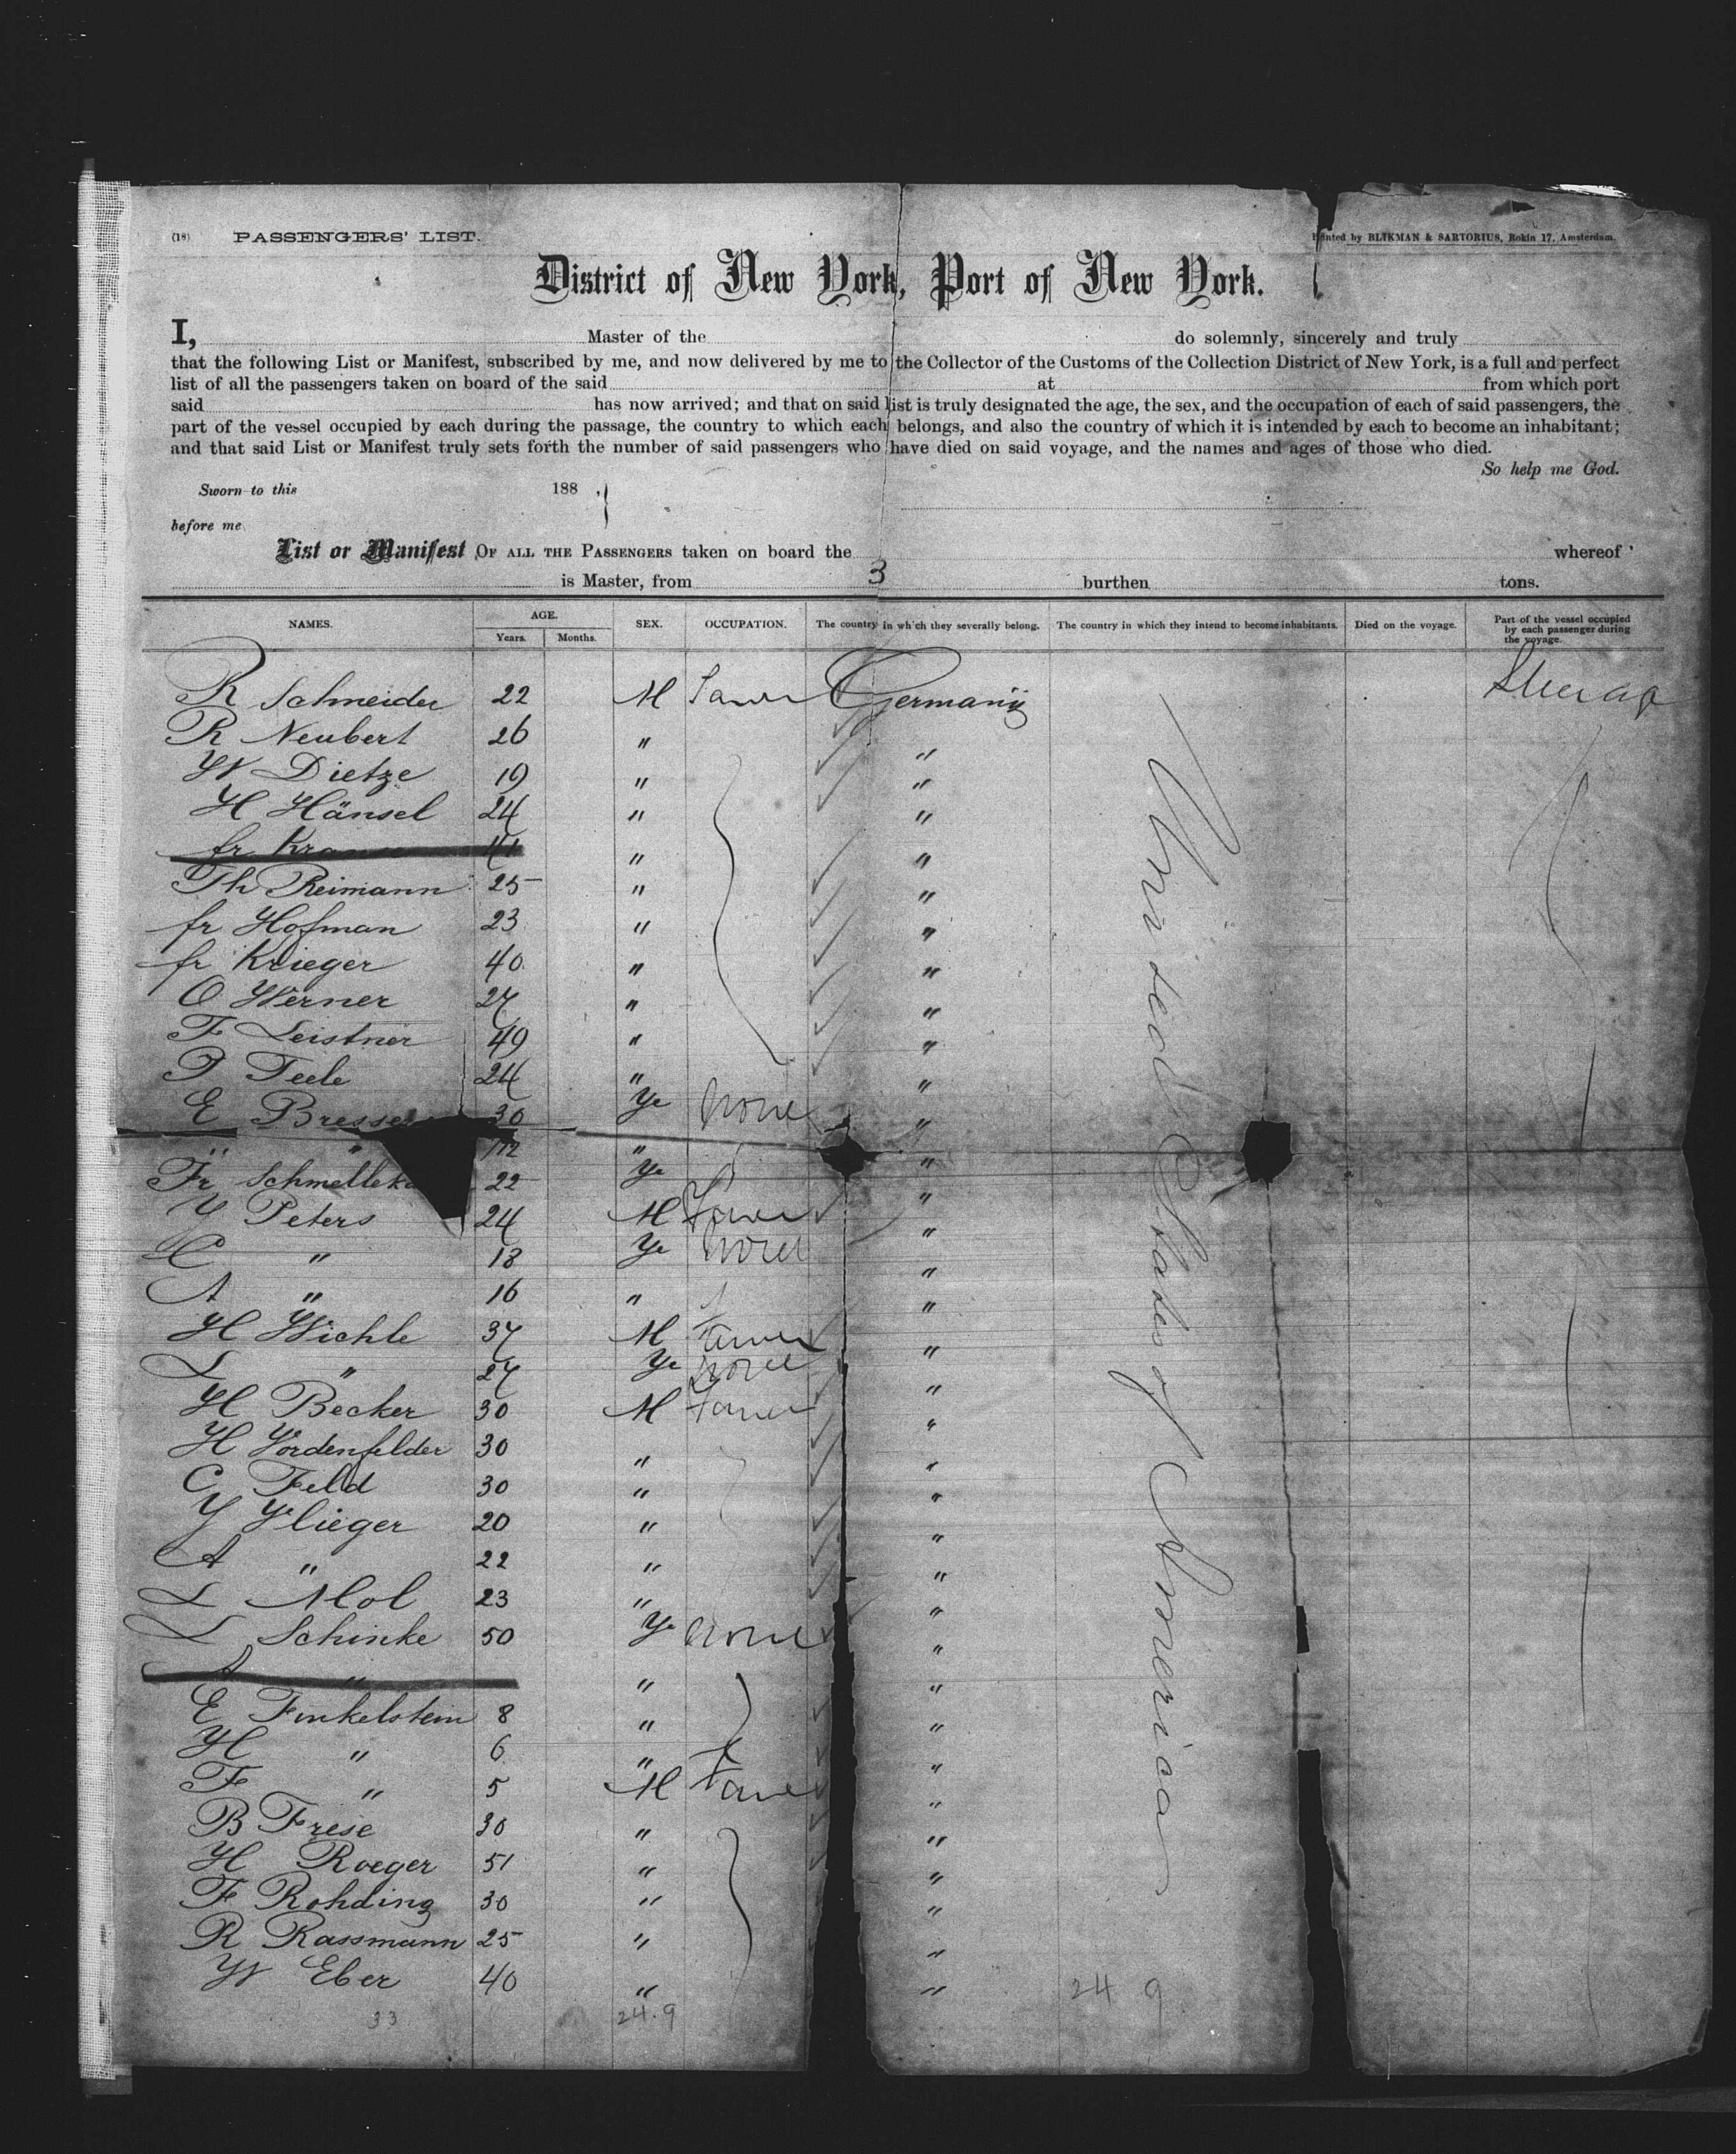 (18) PASSENGERS' LIST. Printed by BLIKMAN & SARTORIUS, Rokin 17, Amsterdam.
District of New York, Port of New York.
I, Master of the do solemnly, sincerely and truly
that the following List or Manifest, subscribed by me, and now delivered by me to the Collector of the Customs of the Collection District of New York, is a full and perfect
list of all the passengers taken on board of the said at from which port
said has now arrived; and that on said list is truly designated the age, the sex, and the occupation of each of said passengers, the
part of the vessel occupied by each during the passage, the country to which each belongs, and also the country of which it is intended by each to become an inhabitant;
and that said List or Manifest truly sets forth the number of said passengers who have died on said voyage, and the names and ages of those who died.
So help me God.
Sworn to this 188 ,
before me
List or Manifest OF ALL THE PASSENGERS taken on board the whereof
is Master, from 3 burthen tons.
NAMES. AGE. SEX. OCCUPATION. The country in which they severally belong. The country in which they intend to become inhabitants. Died on the voyage. Part of the vessel occupied by each passenger during the voyage.
Years. Months.
R Schneider 22 M Germany
R Neubert 26 " "
W Dietze 19 " "
H Hänsel 24 " "
fr 41 " "
Th Reimann 25 " "
fr Hofman 23 " "
fr Krieger 40 " "
O Werner 27 " "
F Leistner 49 " "
P Teele 24 " "
E 30 none "
" " "
Fr 22 "
Y Peters 24 M "
C " 18 none "
A " 16 " "
H Wichle 37 M "
L " 27 none "
H Becker 30 M "
H Vordenfelder 30 " "
C Feld 30 " "
Y Vlieger 20 " "
A " 22 " "
L Mol 23 " "
L Schinke 50 none "
A " " "
E Finkelstein 8 " "
H " 6 " "
F " 5 M "
B Frese 30 " "
H Roeger 51 " "
F Rohding 30 " "
R Rassmann 25 " "
W Eber 40 " "
33 24.9 24 9
United States of America